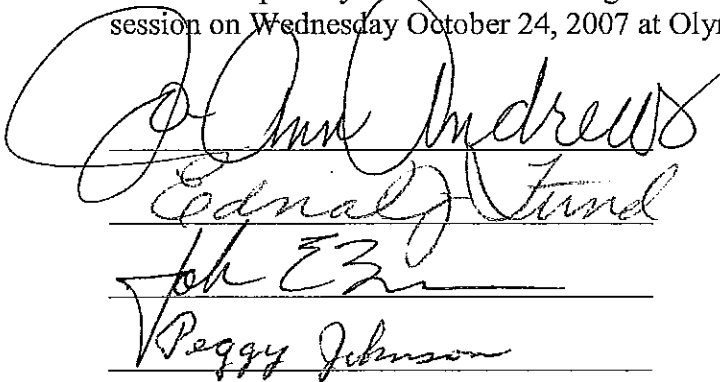 session on Wednesday October 24, 2007 at Oly
Jo Ann Andrews
Fund
John E
Peggy Johnson